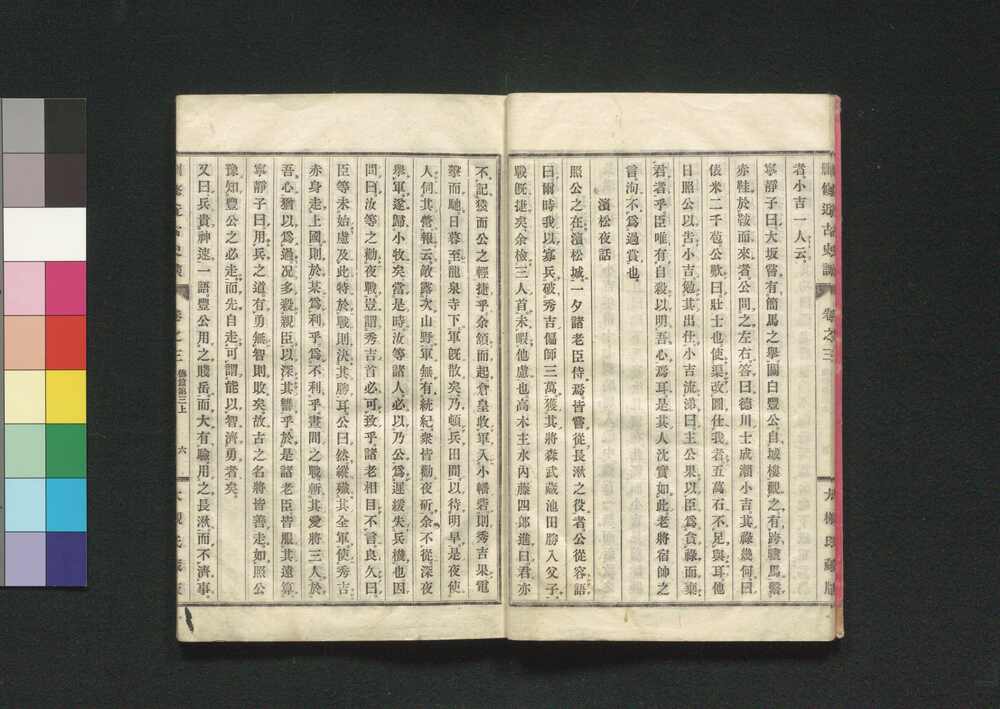 刪修近古史談 卷之三
大槻氏藏版
者小吉一人云
寧靜子曰大坂嘗有簡馬之擧關白豐公自城樓觀之有跨驪馬繫
赤鞋於鞍而來者公問之左右答曰德川士成瀨小吉其祿幾何曰
俵米二千苞公歎曰壯士也使渠改圖仕我者五萬石不足與耳他
日照公以告小吉勉其出仕小吉流涕曰主公果以臣爲貪祿而棄
君者乎臣唯有自殺以明吾心焉耳是其人沈實如此老將宿帥之
言洵不爲過賞也
濱松夜話
照公之在濱松城一夕諸老臣侍焉皆嘗從長湫之役者公從容語
曰爾時我以寡兵破秀吉偏師三萬獲其將森武藏池田勝入父子
戰旣捷矣余檢三人首未暇他慮也高木主水內藤四郎進曰君亦
不記狼而公之輕捷乎余頷而起倉皇收軍入小幡砦則秀吉果電
擊而馳日暮至龍泉寺下軍旣散矣乃頓兵田間以待明早是夜使
人伺其營報云敵露次山野軍無有統紀衆皆勸夜斫余不從深夜
擧軍遂歸小牧矣當是時汝等諸人必以乃公爲遲緩失兵機也因
問曰汝等之勸夜戰豈謂秀吉首必可致乎諸老相目不言良久曰
臣等未始慮及此特於戰則決其勝耳公曰然縱殲其全軍使秀吉
赤身走上國則於某爲利乎爲不利乎晝間之戰斬其愛將三人於
吾心猶以爲過況多殺親臣以深其讐乎於是諸老臣皆服其遠算
寧靜子曰用兵之道有勇無智則敗矣故古之名將皆善走如照公
豫知豐公之必走而先自走可謂能以智濟勇者矣
又曰兵貴神速一語豐公用之賤岳而大有驗用之長湫而不濟事
刪修近古史談 卷之三 德篇第三上 六 大槻氏藏版